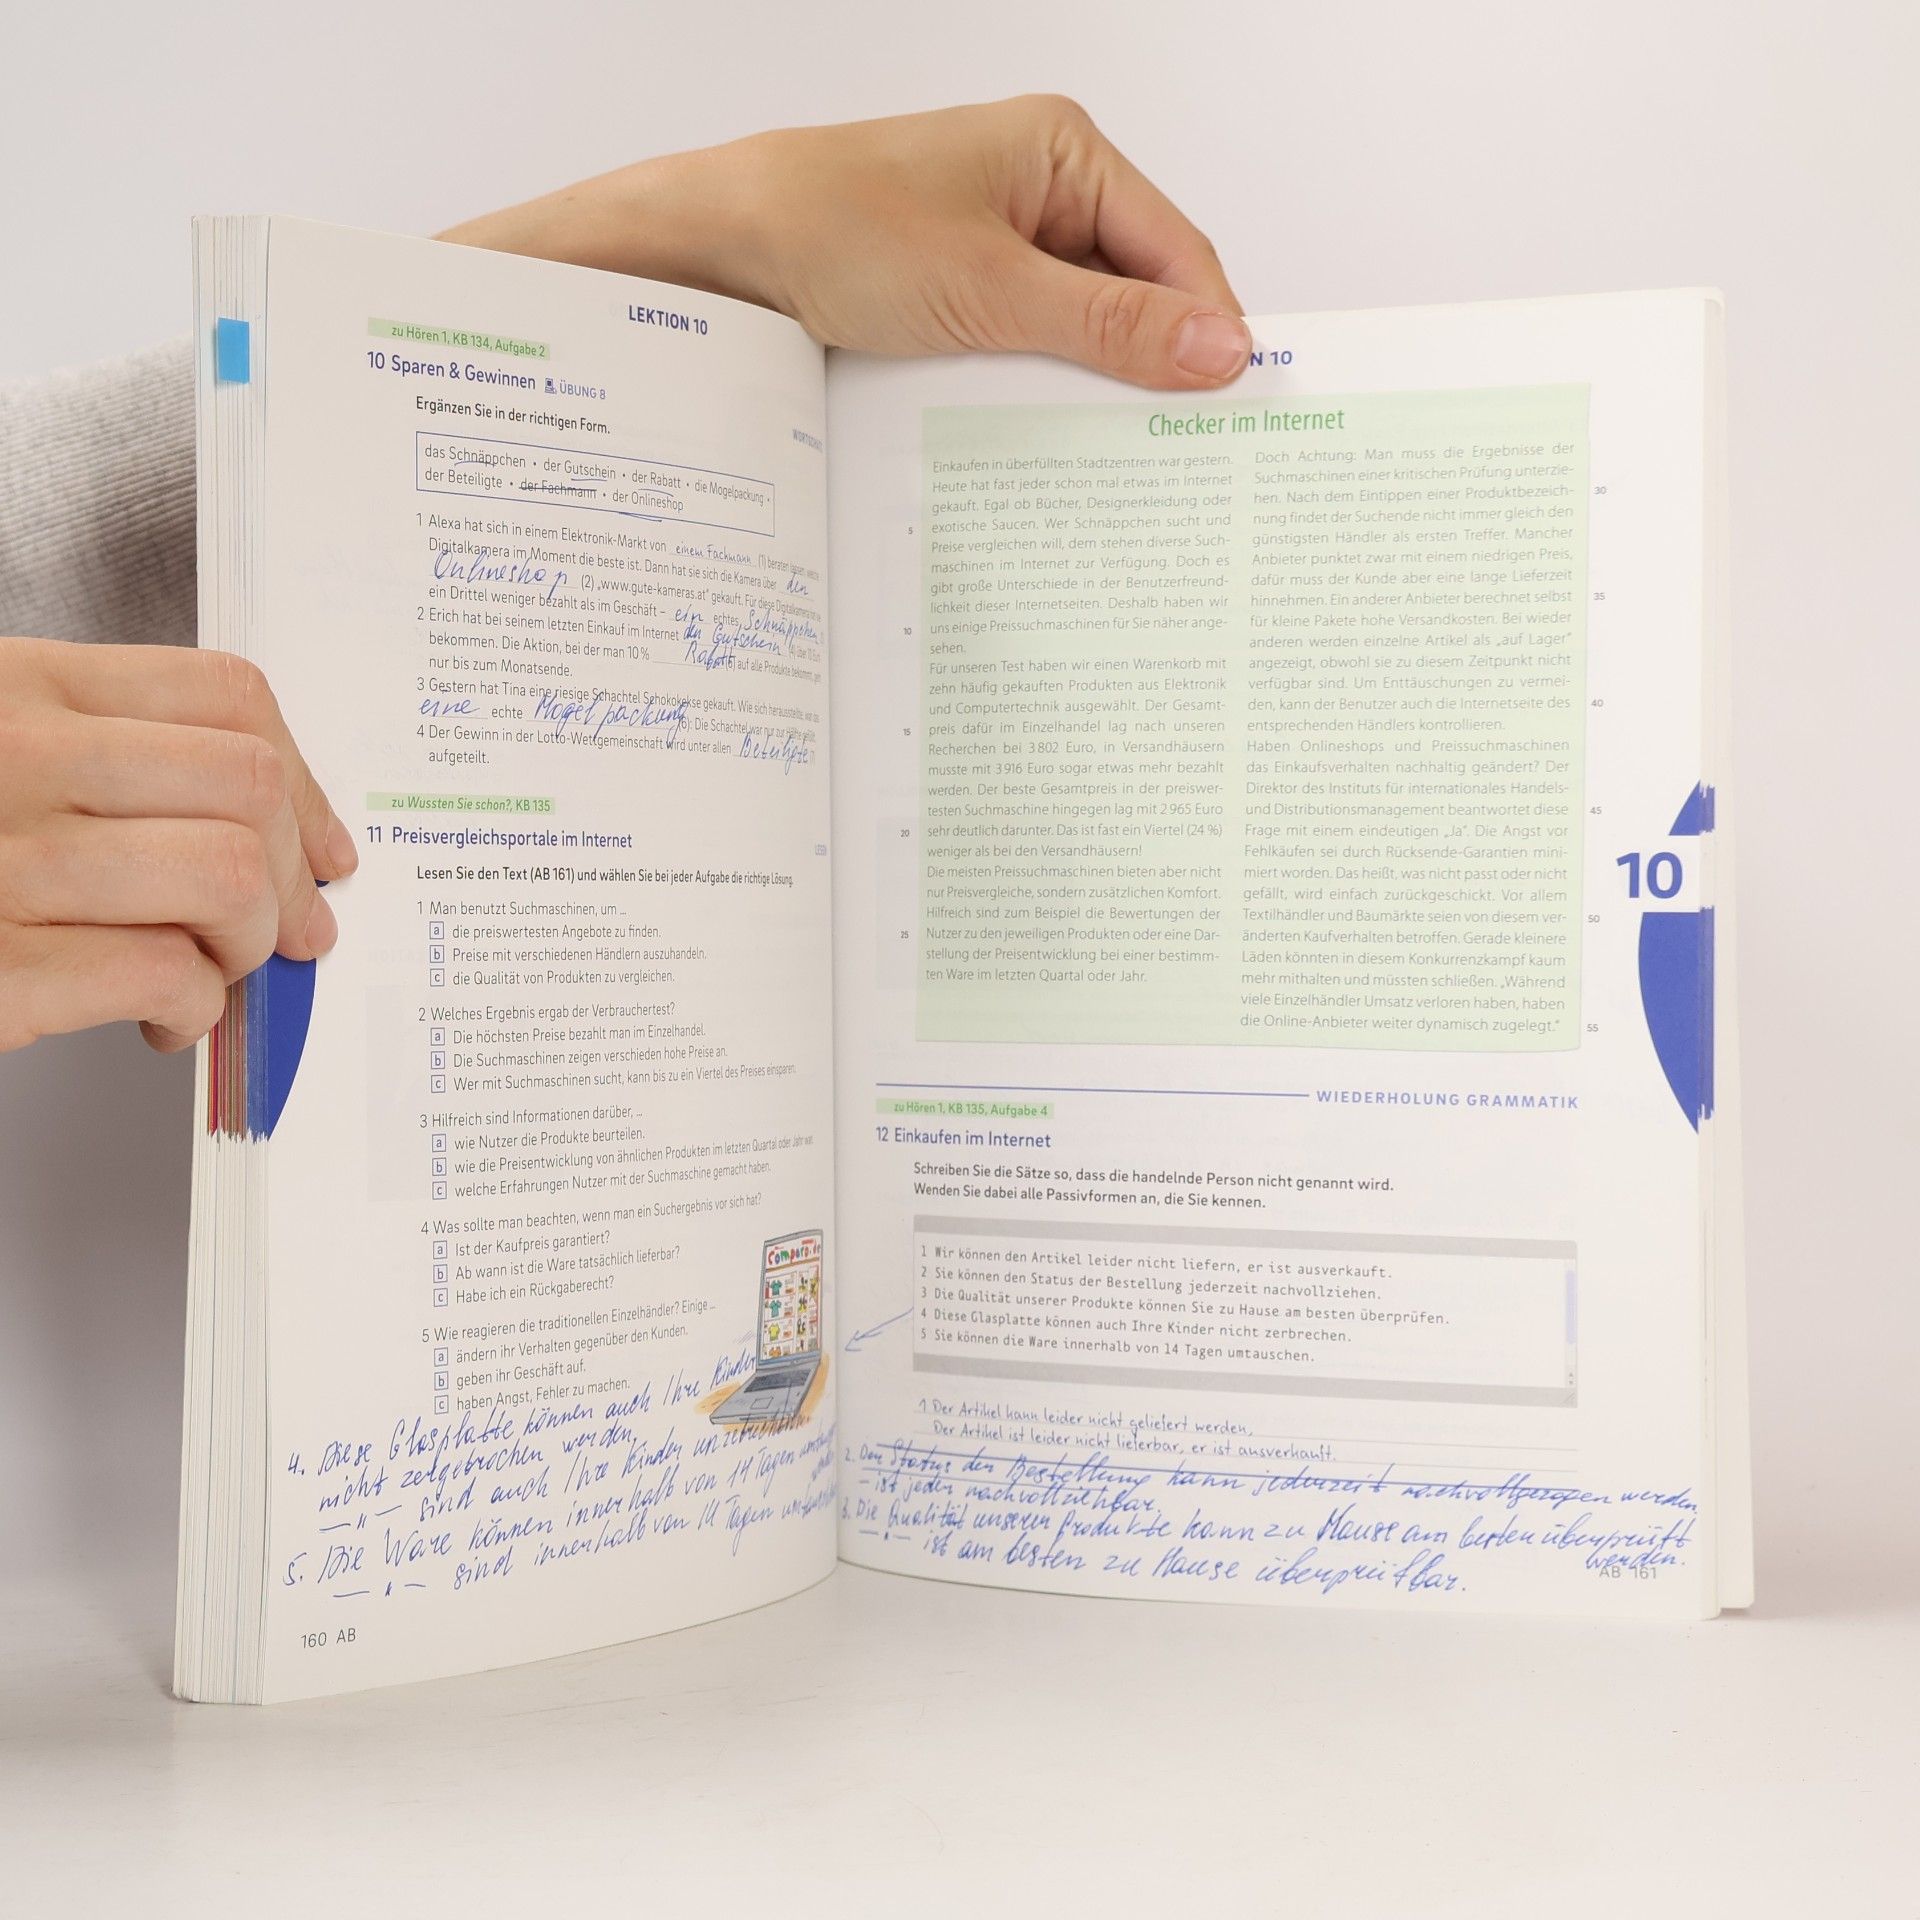 LEKTION 10
zu Hören 1, KB 134, Aufgabe 2
10 Sparen & Gewinnen ÜBUNG 8
WORTSCHATZ
Ergänzen Sie in der richtigen Form.
das Schnäppchen • der Gutschein • der Rabatt • die Mogelpackung •
der Beteiligte • der Fachmann • der Onlineshop
1 Alexa hat sich in einem Elektronik-Markt von einem Fachmann (1) beraten lassen, welche
Digitalkamera im Moment die beste ist. Dann hat sie sich die Kamera über den
Onlineshop (2) „www.gute-kameras.at“ gekauft. Für diese Digitalkamera hat sie
ein Drittel weniger bezahlt als im Geschäft – ein echtes Schnäppchen
2 Erich hat bei seinem letzten Einkauf im Internet den Gutschein (4) über 10 Euro
bekommen. Die Aktion, bei der man 10 % Rabatt (5) auf alle Produkte bekommt, geht
nur bis zum Monatsende.
3 Gestern hat Tina eine riesige Schachtel Schokokekse gekauft. Wie sich herausstellte, war das
eine echte Mogelpackung (6): Die Schachtel war nur zur Hälfte gefüllt.
4 Der Gewinn in der Lotto-Wettgemeinschaft wird unter allen Beteiligte (7)
aufgeteilt.
zu Wussten Sie schon?, KB 135
11 Preisvergleichsportale im Internet
LESEN
Lesen Sie den Text (AB 161) und wählen Sie bei jeder Aufgabe die richtige Lösung.
1 Man benutzt Suchmaschinen, um ...
a die preiswertesten Angebote zu finden.
b Preise mit verschiedenen Händlern auszuhandeln.
c die Qualität von Produkten zu vergleichen.
2 Welches Ergebnis ergab der Verbrauchertest?
a Die höchsten Preise bezahlt man im Einzelhandel.
b Die Suchmaschinen zeigen verschieden hohe Preise an.
c Wer mit Suchmaschinen sucht, kann bis zu ein Viertel des Preises einsparen.
3 Hilfreich sind Informationen darüber, ...
a wie Nutzer die Produkte beurteilen.
b wie die Preisentwicklung von ähnlichen Produkten im letzten Quartal oder Jahr war.
c welche Erfahrungen Nutzer mit der Suchmaschine gemacht haben.
4 Was sollte man beachten, wenn man ein Suchergebnis vor sich hat?
a Ist der Kaufpreis garantiert?
b Ab wann ist die Ware tatsächlich lieferbar?
c Habe ich ein Rückgaberecht?
5 Wie reagieren die traditionellen Einzelhändler? Einige ...
a ändern ihr Verhalten gegenüber den Kunden.
b geben ihr Geschäft auf.
c haben Angst, Fehler zu machen.
comparo.de
4. Diese Glasplatte können auch Ihre Kinder
nicht zergebrochen werden.
— " — sind auch Ihre Kinder unzerbrechbar.
5. Die Ware können innerhalb von 14 Tagen
— " — sind innerhalb von 14 Tagen
160 AB
N 10
Checker im Internet
Einkaufen in überfüllten Stadtzentren war gestern.
Heute hat fast jeder schon mal etwas im Internet
gekauft. Egal ob Bücher, Designerkleidung oder
5 exotische Saucen. Wer Schnäppchen sucht und
Preise vergleichen will, dem stehen diverse Such-
maschinen im Internet zur Verfügung. Doch es
gibt große Unterschiede in der Benutzerfreund-
lichkeit dieser Internetseiten. Deshalb haben wir
10 uns einige Preissuchmaschinen für Sie näher ange-
sehen.
Für unseren Test haben wir einen Warenkorb mit
zehn häufig gekauften Produkten aus Elektronik
und Computertechnik ausgewählt. Der Gesamt-
15 preis dafür im Einzelhandel lag nach unseren
Recherchen bei 3 802 Euro, in Versandhäusern
musste mit 3 916 Euro sogar etwas mehr bezahlt
werden. Der beste Gesamtpreis in der preiswer-
testen Suchmaschine hingegen lag mit 2 965 Euro
20 sehr deutlich darunter. Das ist fast ein Viertel (24 %)
weniger als bei den Versandhäusern!
Die meisten Preissuchmaschinen bieten aber nicht
nur Preisvergleiche, sondern zusätzlichen Komfort.
Hilfreich sind zum Beispiel die Bewertungen der
25 Nutzer zu den jeweiligen Produkten oder eine Dar-
stellung der Preisentwicklung bei einer bestimm-
ten Ware im letzten Quartal oder Jahr.
Doch Achtung: Man muss die Ergebnisse der
Suchmaschinen einer kritischen Prüfung unterzie-
hen. Nach dem Eintippen einer Produktbezeich- 30
nung findet der Suchende nicht immer gleich den
günstigsten Händler als ersten Treffer. Mancher
Anbieter punktet zwar mit einem niedrigen Preis,
dafür muss der Kunde aber eine lange Lieferzeit
hinnehmen. Ein anderer Anbieter berechnet selbst 35
für kleine Pakete hohe Versandkosten. Bei wieder
anderen werden einzelne Artikel als „auf Lager“
angezeigt, obwohl sie zu diesem Zeitpunkt nicht
verfügbar sind. Um Enttäuschungen zu vermei-
den, kann der Benutzer auch die Internetseite des 40
entsprechenden Händlers kontrollieren.
Haben Onlineshops und Preissuchmaschinen
das Einkaufsverhalten nachhaltig geändert? Der
Direktor des Instituts für internationales Handels-
und Distributionsmanagement beantwortet diese 45
Frage mit einem eindeutigen „Ja“. Die Angst vor
Fehlkäufen sei durch Rücksende-Garantien mini-
miert worden. Das heißt, was nicht passt oder nicht
gefällt, wird einfach zurückgeschickt. Vor allem
Textilhändler und Baumärkte seien von diesem ver- 50
änderten Kaufverhalten betroffen. Gerade kleinere
Läden könnten in diesem Konkurrenzkampf kaum
mehr mithalten und müssten schließen. „Während
viele Einzelhändler Umsatz verloren haben, haben
die Online-Anbieter weiter dynamisch zugelegt.“ 55
10
WIEDERHOLUNG GRAMMATIK
zu Hören 1, KB 135, Aufgabe 4
12 Einkaufen im Internet
Schreiben Sie die Sätze so, dass die handelnde Person nicht genannt wird.
Wenden Sie dabei alle Passivformen an, die Sie kennen.
1 Wir können den Artikel leider nicht liefern, er ist ausverkauft.
2 Sie können den Status der Bestellung jederzeit nachvollziehen.
3 Die Qualität unserer Produkte können Sie zu Hause am besten überprüfen.
4 Diese Glasplatte können auch Ihre Kinder nicht zerbrechen.
5 Sie können die Ware innerhalb von 14 Tagen umtauschen.
1 Der Artikel kann leider nicht geliefert werden,
Der Artikel ist leider nicht lieferbar, er ist ausverkauft.
2. Den Status der Bestellung kann jederzeit nachvollgezogen werden.
— ist jeden nachvollziehbar.
3. Die Qualität unserer Produkte kann zu Hause am besten überprüft
werden.
— " — ist am besten zu Hause überprüfbar.
AB 161